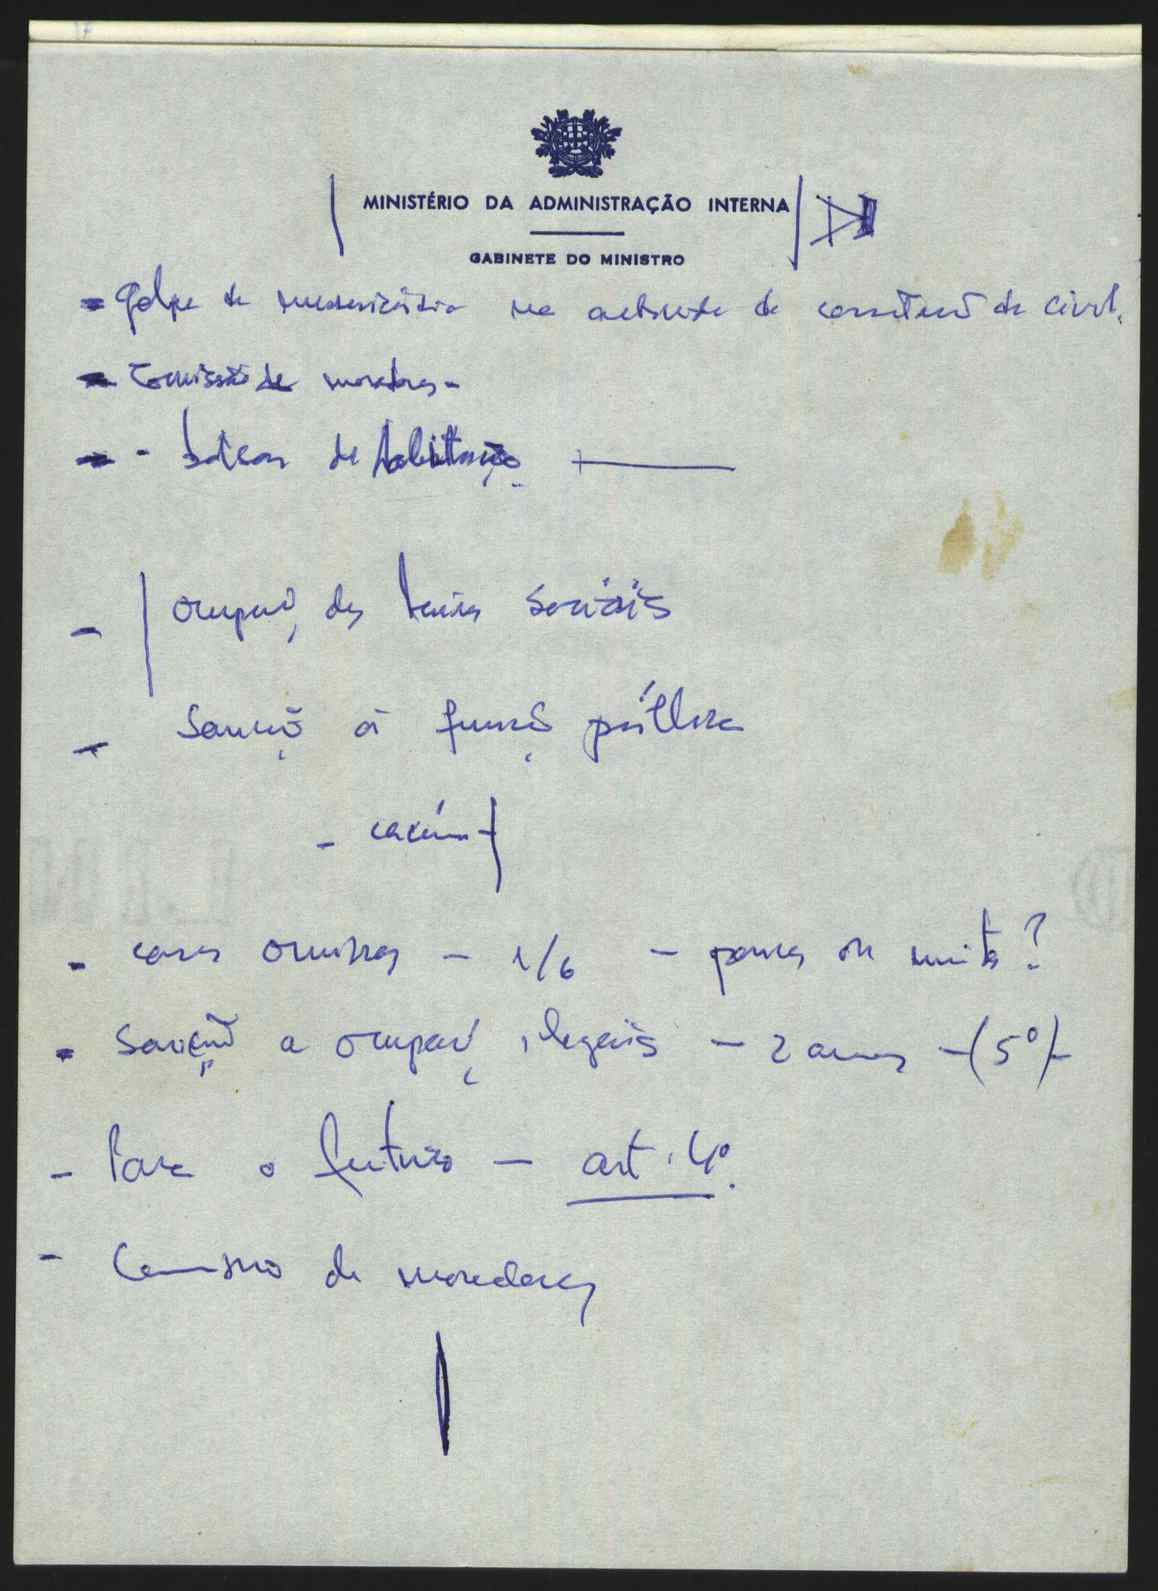 MINISTÉRIO DA ADMINISTRAÇÃO INTERNA
GABINETE DO MINISTRO
- Golpe de misericórdia na actividade de construção de civil.
- Comissão de moradores -
- - bolsas de habitação
- ocupação des sociais
- Sanção à função pública
-
- casas omissas - 1/6 - poucas ou muitas?
- Sanção a ocupações ilegais - 2 anos - (5º) -
- Para o futuro - art. 4º.
- Comissão de moradores